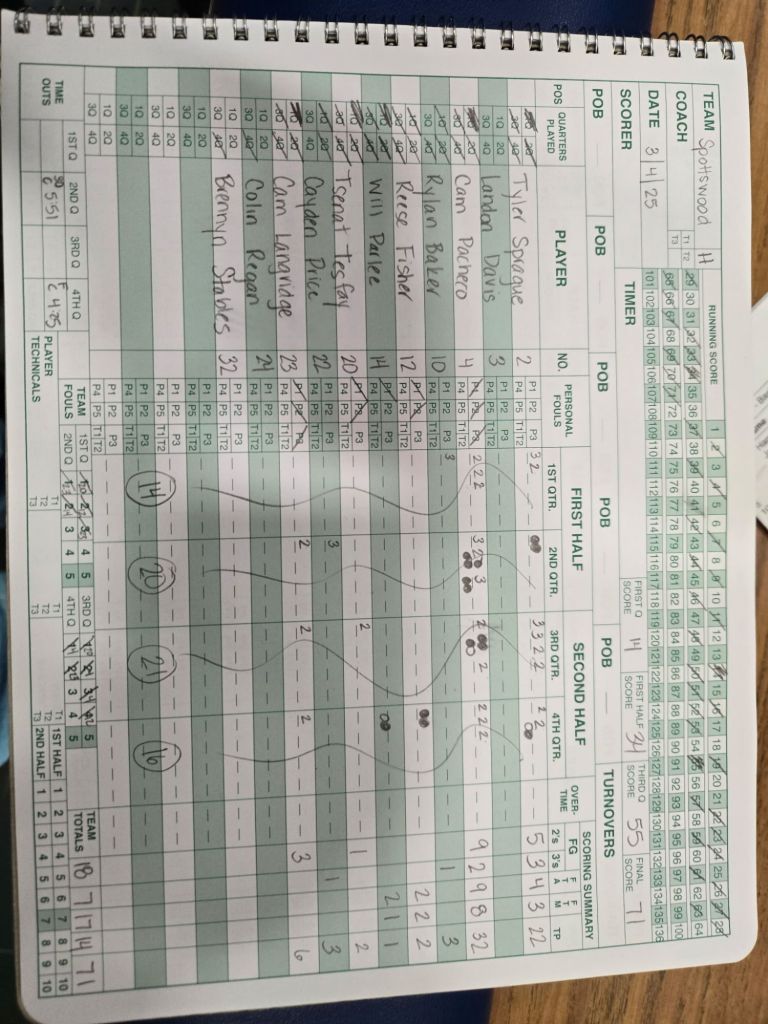 TEAM Spottswood H
COACH
DATE 3/4/25
SCORER
TIMER
T1 T2
T3
RUNNING SCORE
1 2 3 4 5 6 7 8 9 10 11 12 13 14 15 16 17 18 19 20 21 22 23 24 25 26 27 28
29 30 31 32 33 34 35 36 37 38 39 40 41 42 43 44 45 46 47 48 49 50 51 52 53 54 55 56 57 58 59 60 61 62 63 64
65 66 67 68 69 70 71 72 73 74 75 76 77 78 79 80 81 82 83 84 85 86 87 88 89 90 91 92 93 94 95 96 97 98 99 100
101 102 103 104 105 106 107 108 109 110 111 112 113 114 115 116 117 118 119 120 121 122 123 124 125 126 127 128 129 130 131 132 133 134 135 136
FIRST Q SCORE 14 FIRST HALF SCORE 34 THIRD Q SCORE 55 FINAL SCORE 71
POB POB POB POB POB TURNOVERS
POS QUARTERS PLAYED PLAYER NO. PERSONAL FOULS FIRST HALF SECOND HALF OVER-TIME SCORING SUMMARY
1ST QTR. 2ND QTR. 3RD QTR. 4TH QTR. FG 2's 3's FTA FTM TP
Tyler Sprague 2 P1 P2 P3 P4 P5 T1 T2 3 2 3 3 2 2 2 2 5 3 4 3 22
Landon Davis 3 P1 P2 P3 P4 P5 T1 T2
Cam Pacheco 4 P1 P2 P3 P4 P5 T1 T2 2 2 2 3 2 3 2 2 2 2 2 9 2 9 8 32
Rylan Baker 10 P1 P2 P3 P4 P5 T1 T2 3 1 3
Reese Fisher 12 P1 P2 P3 P4 P5 T1 T2 2 2 2
Will Parlee 14 P1 P2 P3 P4 P5 T1 T2 2 1 1
Tsenat tesfay 20 P1 P2 P3 P4 P5 T1 T2 2 1 2
Cayden Price 22 P1 P2 P3 P4 P5 T1 T2 3 1 3
Cam Langridge 23 P1 P2 P3 P4 P5 T1 T2 2 2 2 3 6
Colin Regan 24 P1 P2 P3 P4 P5 T1 T2
Brennyn Stables 32 P1 P2 P3 P4 P5 T1 T2
14 20 21 16
TIME OUTS 1ST Q 2ND Q 3RD Q 4TH Q
30 @ 5:51 F @ 4:25
TEAM FOULS 1ST Q 1 2 3 4 5 3RD Q 1 2 3 4 5
2ND Q 1 2 3 4 5 4TH Q 1 2 3 4 5
TEAM TOTALS 18 7 17 14 71
PLAYER TECHNICALS T1 T2 T3 T1 T2 T3 T1 T2 T3
1ST HALF 1 2 3 4 5 6 7 8 9 10
2ND HALF 1 2 3 4 5 6 7 8 9 10